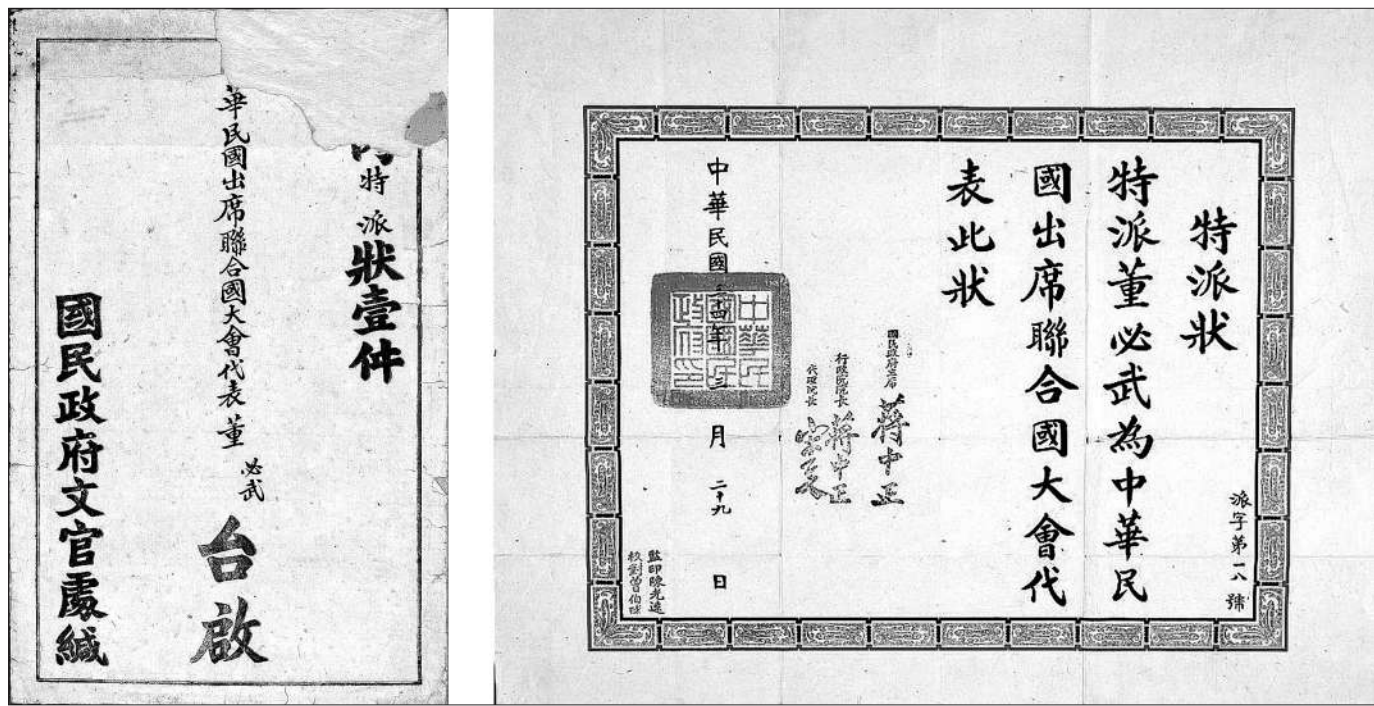 內特派狀壹件
華民國出席聯合國大會代表董必武
台啟
國民政府文官處緘
派字第一八號
特派狀
特派董必武為中華民
國出席聯合國大會代
表此狀
國民政府主席 蔣中正
行政院院長 蔣中正
代理院長 宋子文
中華民國三十四年三月二十九日
中華民國國民政府印
監印陳光遠
校對曾伯球